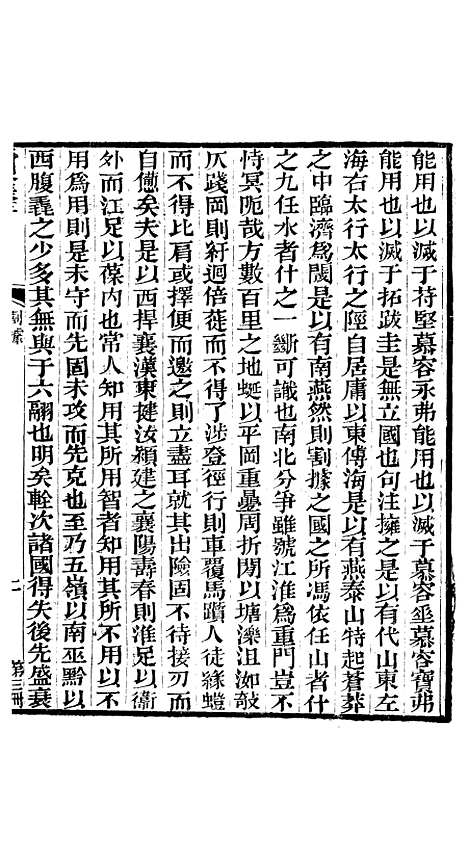 能用也以滅于苻堅慕容永弗能用也以滅于慕容垂慕容寶弗
能用也以滅于拓跋圭是無立國也句注擁之是以有代山東左
海右太行太行之陘自居庸以東傅海是以有燕泰山特起蒼莽
之中臨濟爲閾是以有南燕然則割據之國之所馮依任山者什
之九任水者什之一斷可識也南北分爭雖號江淮爲重門豈不
恃冥阨哉方數百里之地蜒以平岡重疊周折閉以塘濼沮洳敧
仄踐岡則紆迴倍蓰而不得了涉登徑行則車覆馬躓人徒緣螘
而不得比肩或擇便而邀之則立盡耳就其出險固不待接刃而
自憊矣夫是以西捍襄漢東揵汝潁建之襄陽壽春則淮足以衞
外而江足以葆内也常人知用其所用智者知用其所不用以不
用爲用則是未守而先固未攻而先克也至乃五嶺以南巫黔以
西腹毳之少多其無與于六翮也明矣輇次諸國得失後先盛衰
制索
二
第三冊